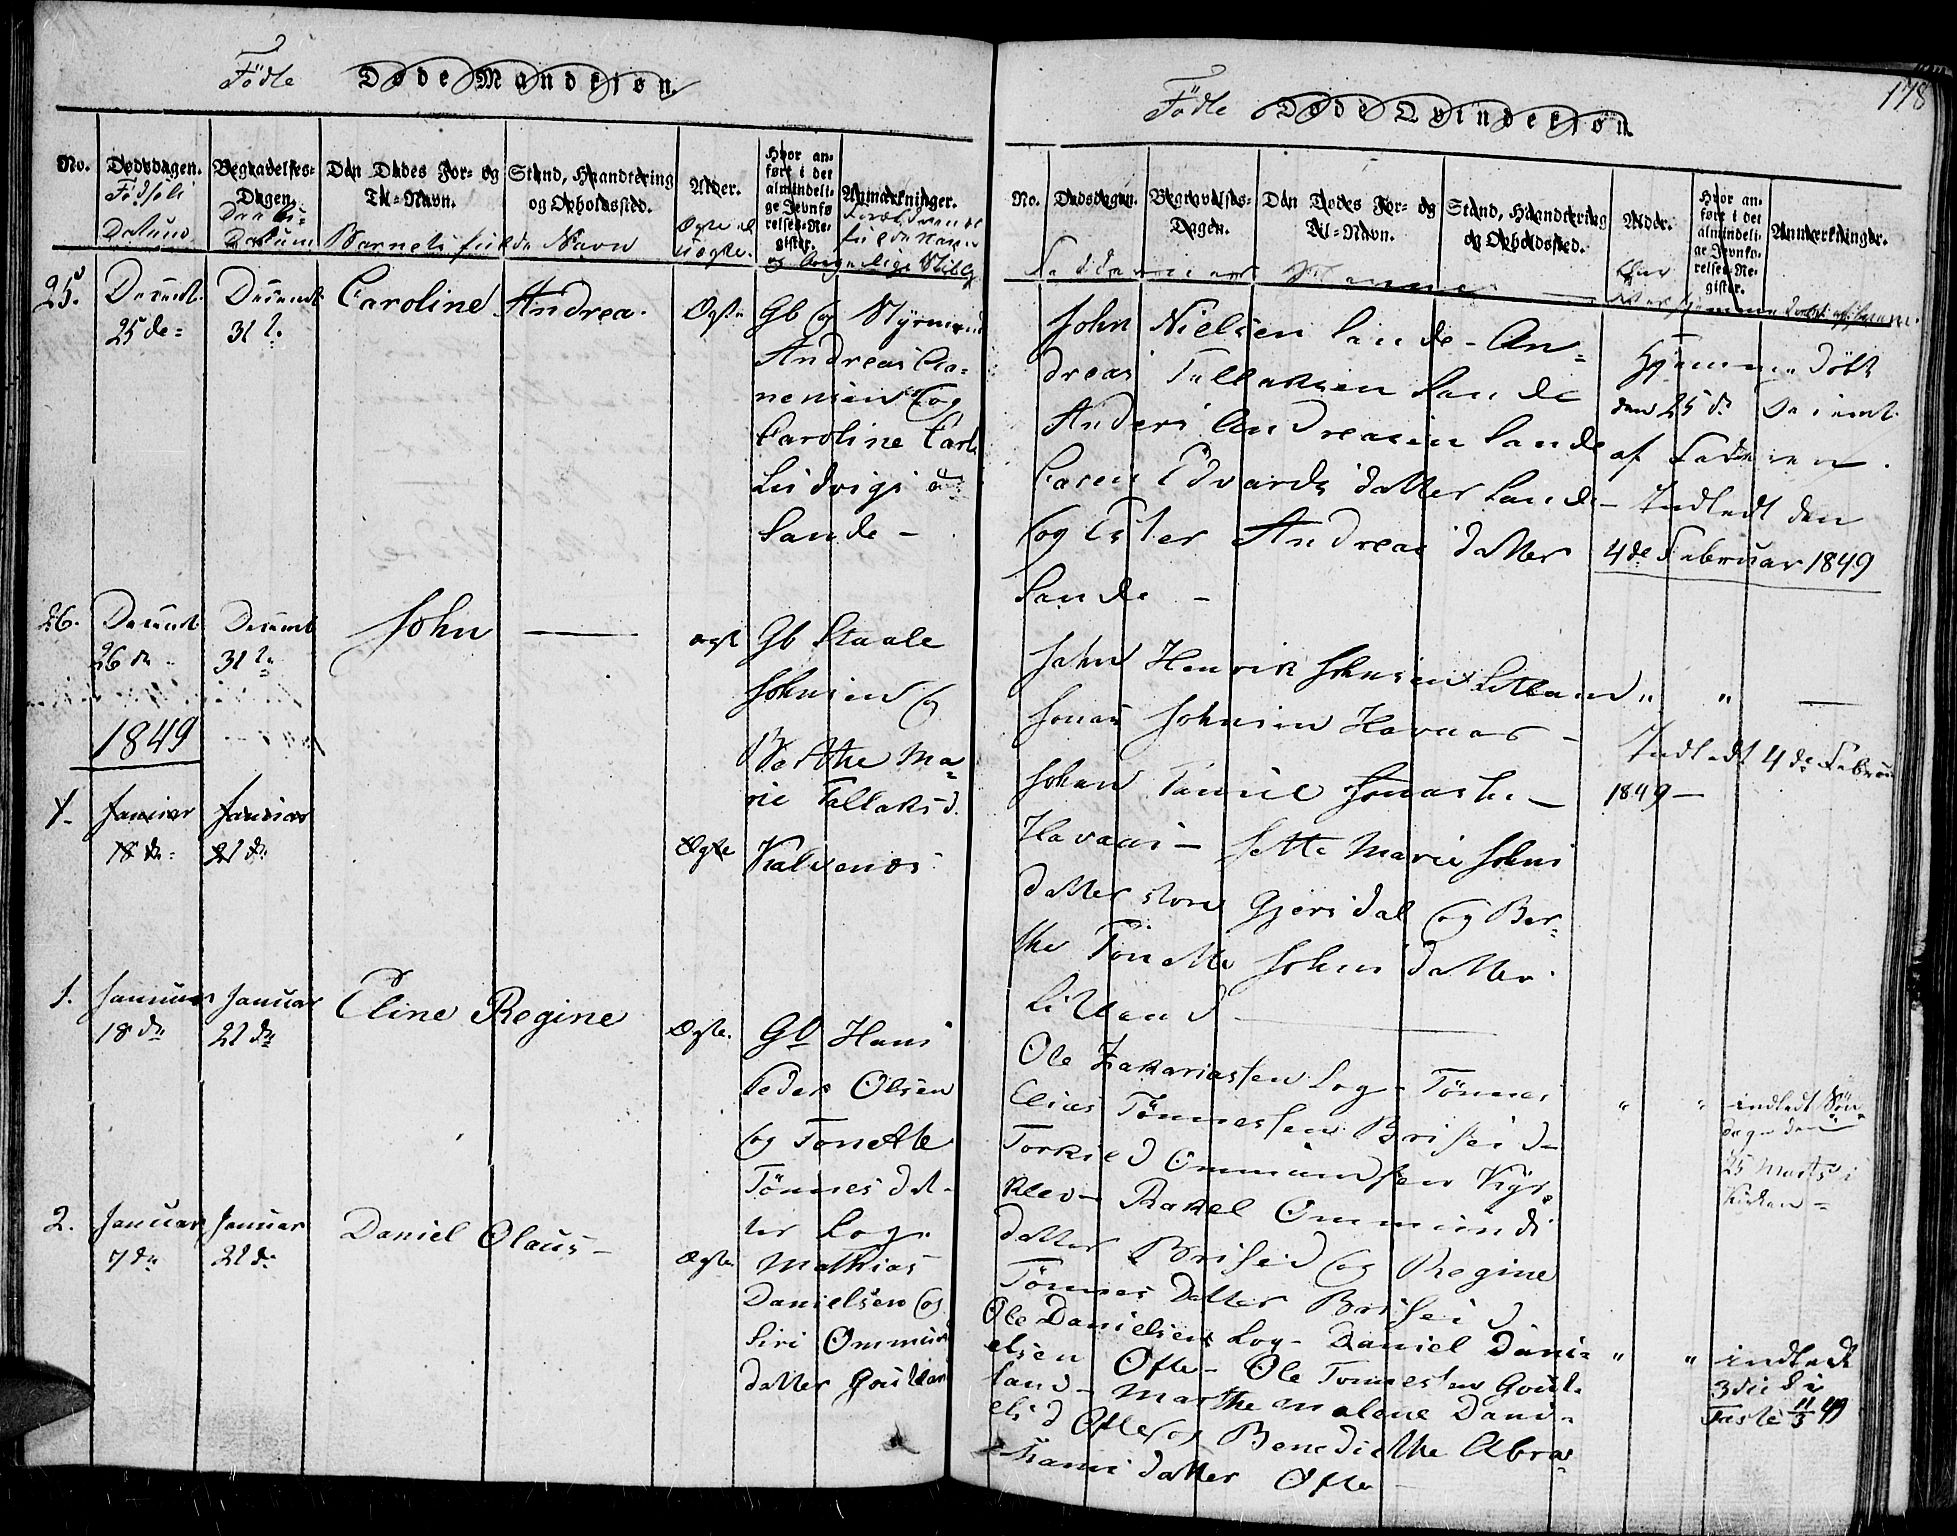 Födte Døde Mandkiøn.
No. Dødsdagen. Begravelses-Dagen. Den Dødes For- og Til-Navn. Stand, Haandtering og Opholdssted. Alder. Hvor anført i det almindelige Jevnførelses-Register. Anmærkninger.
Födsels Datum
Daabs-Datum
Barnets fulde Navn
Ægte el uægte.
Foræld
fulde Navn
25. Decemb. 25de Decemb. 31te Caroline Andrea. Ægte Gb og Styrmand
Andreas
nensen og
Caroline Carl
Ludvigs d
Lande –
26. Decemb. 26de Decemb. 31te John — ægt Gb Staale
Johnsen og
Berthe Ma-
rie Tallaksd.
Kalvenes
1849
1. Januar 18de Januar 21de Ægte
1. Januar 18de Januar 21de Eline Regine Ægte. Gb Hans
Peder Olsen
og Tonette
Tönnesdat-
ter Log.
2. Januar 7de Januar 21de Daniel Olaus – Ægte. Mathias
Danielsen og
Siri Ommunds
datter
178
Födte Døde Qvindekiøn.
No. Dødsdagen. Begravelses-Dagen. Den Dødes For- og Til-Navn. Stand, Haandtering og Opholdssted. Alder. Hvor anført i det almindelige Jevnførelses-Register. Anmærkninger.
John Nielsen Lande – An-
dreas Tallaksen Lande
Anders Andreasen Lande
Caren Edvards datter Lande
og Ester Andreas datter
Lande –
Hjemmedöbt
den 25de Decemb.
af Faderen.
Indledt den
4de Februar 1849
John Henrik Johnsen Litland " " —
Jonas Johnsen Havaas –
Johan Daniel
Havaas – Jette Marie Johns
datter store Gjersdal og Ber-
the Tonette Johns datter
Litland
Indledt 4de Februar
1849 —
Ole Zakariassen Log – Tönnes
Elias Tönnessen Briseid –
Torkild Ommundsen
klev – Rakel Ommunds
datter Briseid og Regine
Tönnes datter Briseid
" " indledt Sön-
dagen den
25 Marts i
Kirken –
Ole Danielsen Log – Daniel Dani-
elsen Ofte – Ole Tönnessen
land – Marthe Malene Dani-
elsd Ofte og Benedicthe Abra-
hams datter Ofte
" " indledt
3die S. i
Faste 11/3 49